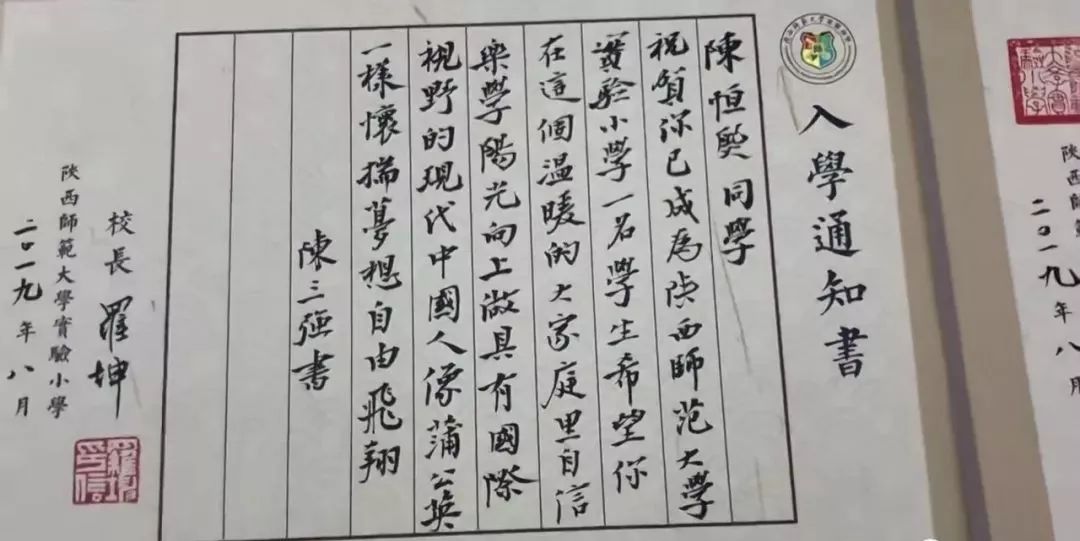 入學通知書
陳恒熙同學
祝賀你已成為陕西師范大學
實驗小學一名學生希望你
在這個温暖的大家庭里自信
樂學陽光向上做具有國際
視野的現代中國人像蒲公英
一樣懷揣夢想自由飛翔
陳三強書
校長 羅坤
陝西師範大學實驗小學
二〇一九年八月
羅坤印信